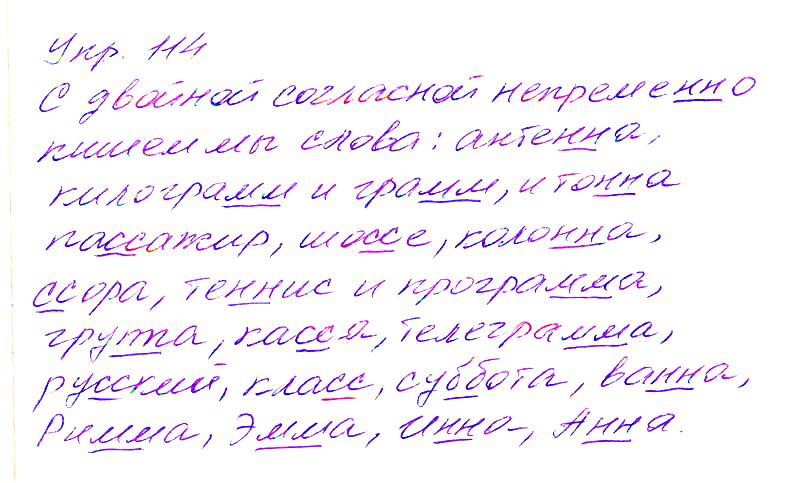 Укр. 114
С двойной согласной непременно
пишем мы слова: антенна,
килограмм и грамм, и тонна
пассажир, шоссе, колонна,
ссора, теннис и программа,
группа, касса, телеграмма,
русский, класс, суббота, ванна,
Римма, Эмма, Инна, Анна.